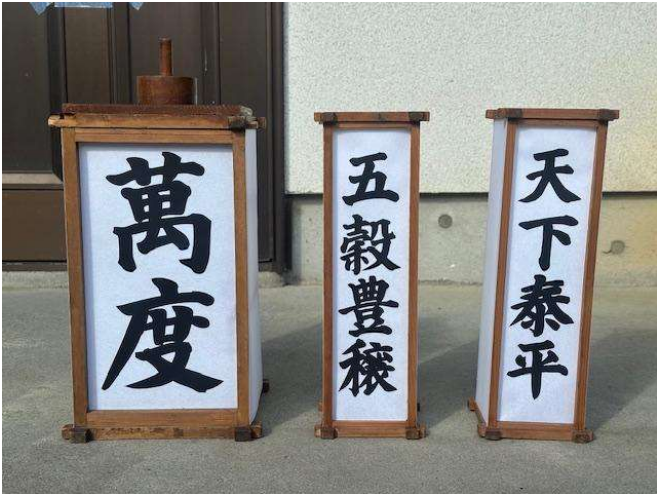 萬度
五穀豊穣
天下泰平